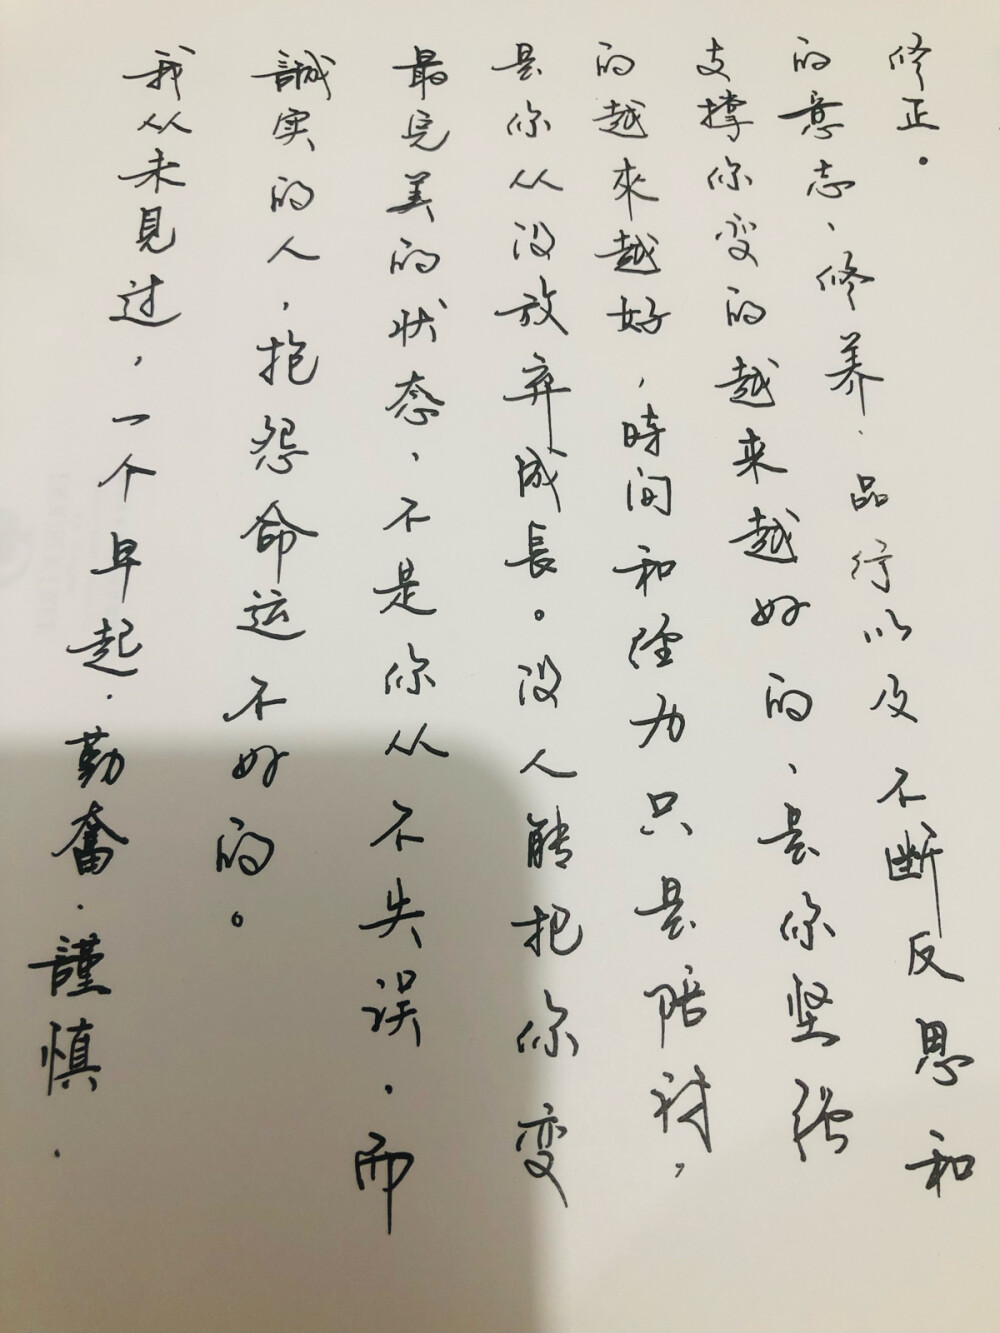 我从未見过，一个早起.勤奮.謹慎.
誠实的人，抱怨命运不好的。
最完美的状态、不是你从不失误.而
是你从没放弃成長。没人能把你变
的越來越好，時间和经力只是陪衬，
支撑你变的越来越好的、是你坚强
的意志、修养.品行以及不断反思和
修正。